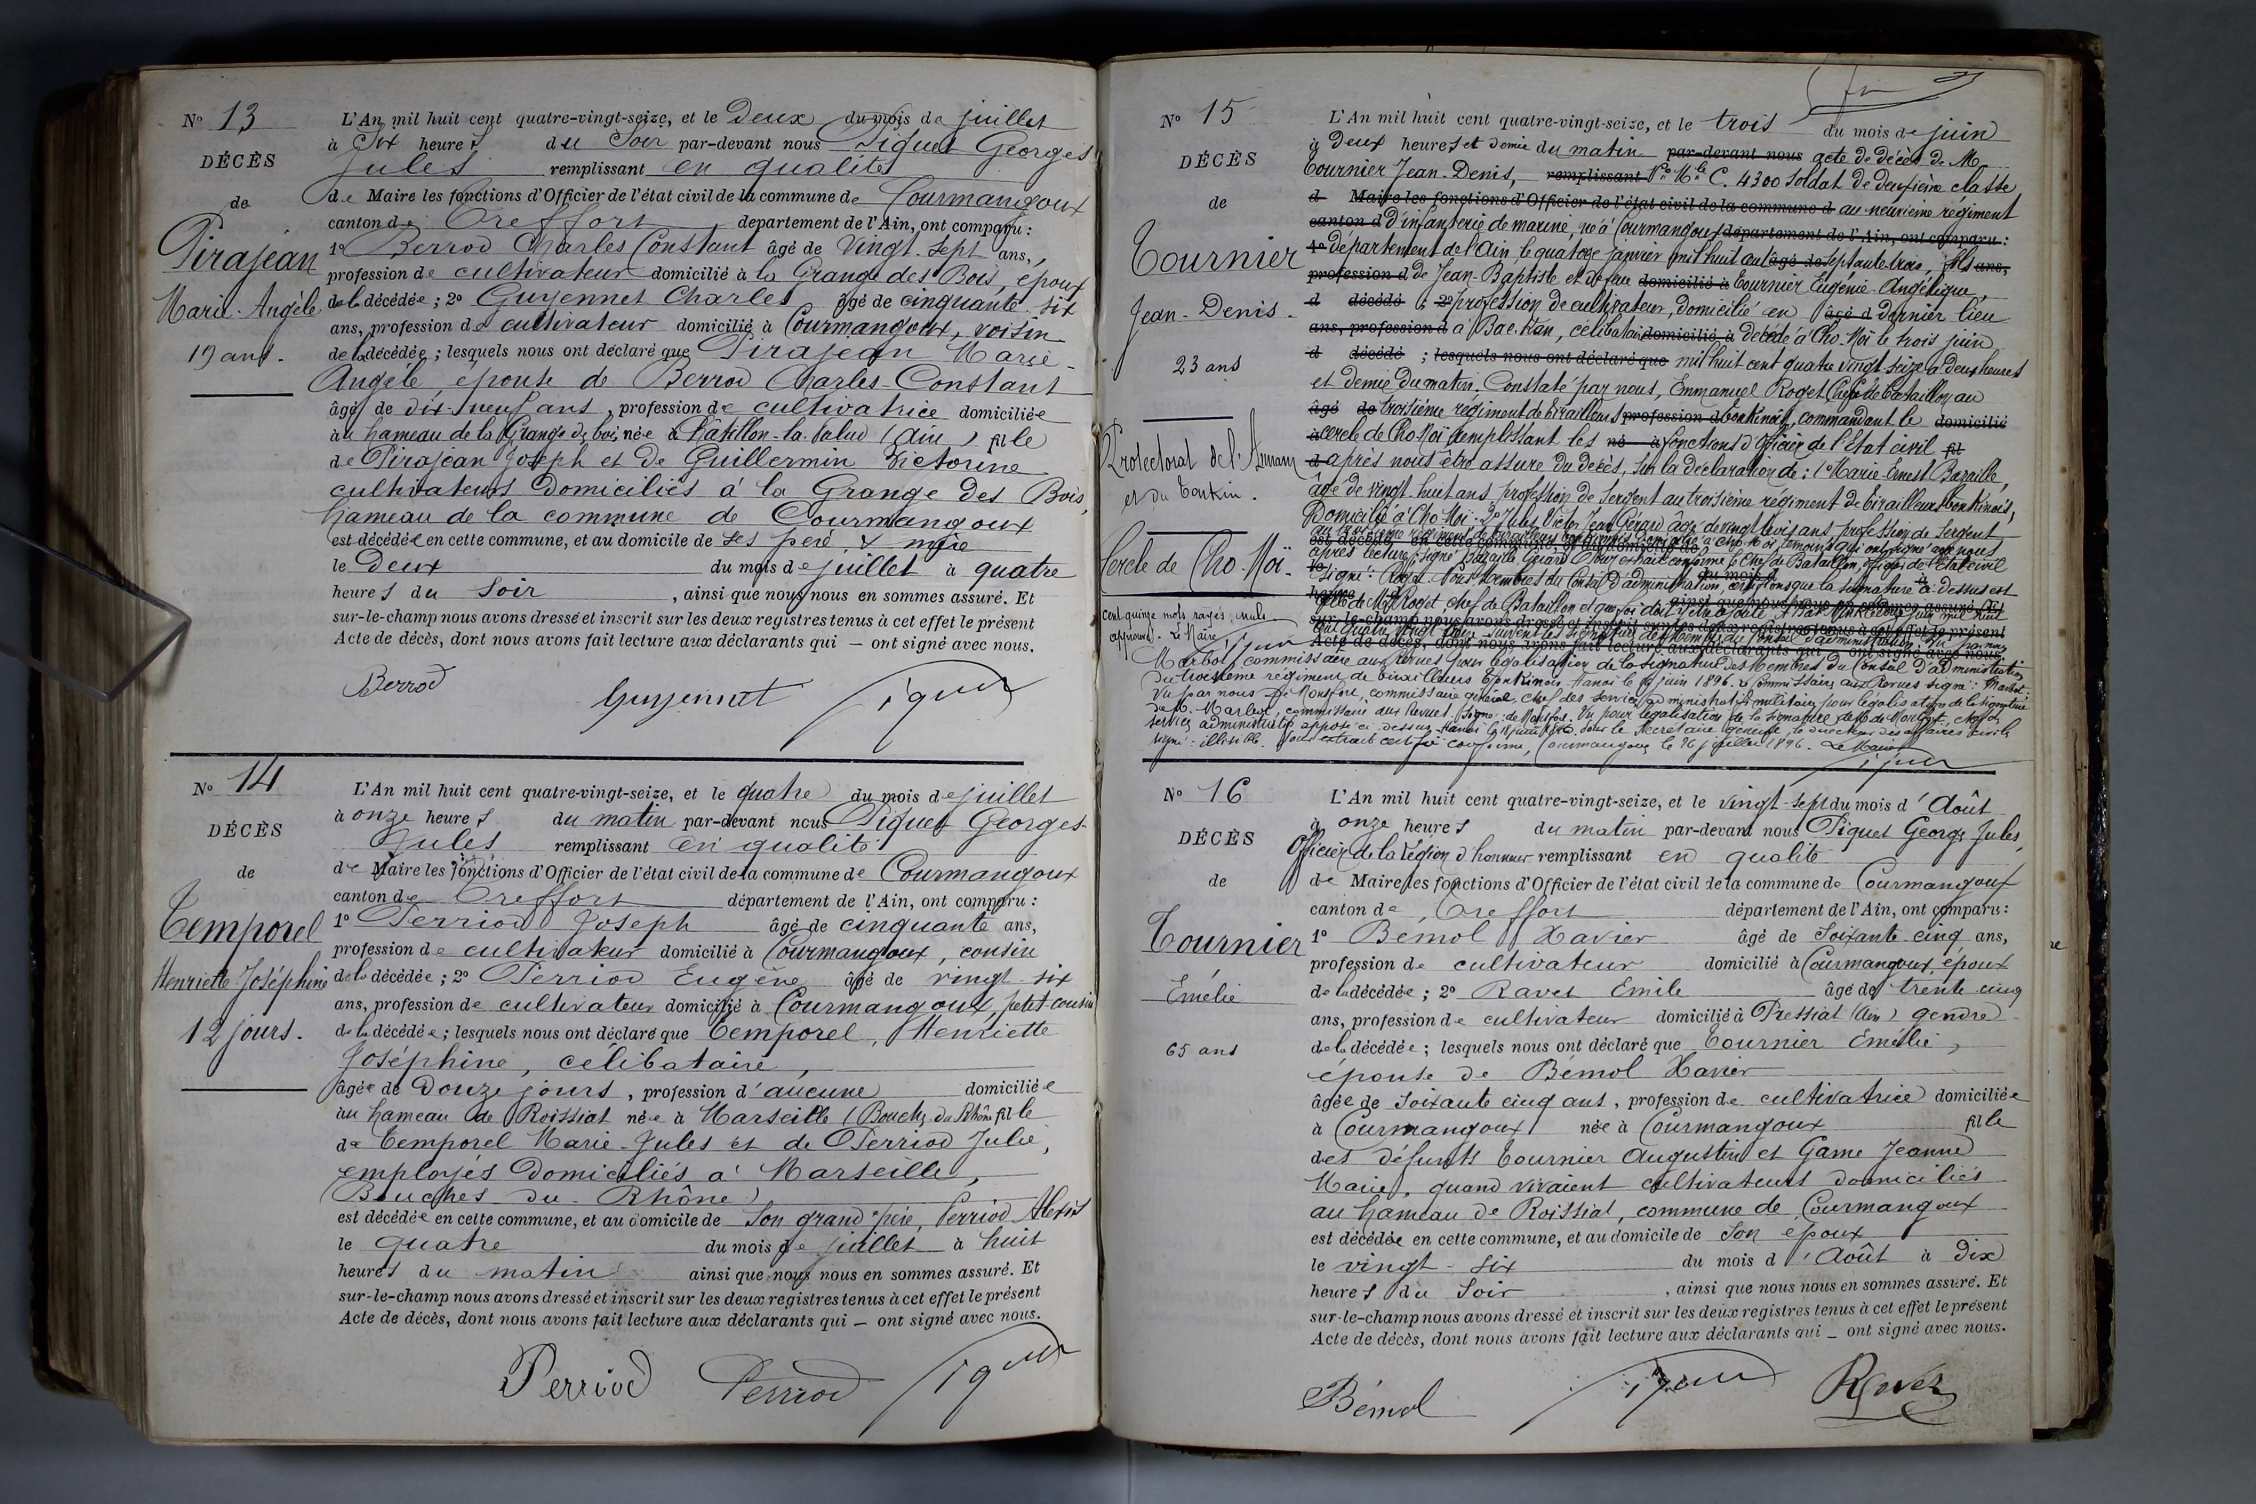 N° 13
DÉCÈS
de
Pirajean
Marie-Angèle
19 ans.
L'An mil huit cent quatre-vingt-seize, et le Deux du mois de juillet
à Six heures du Soir par-devant nous Piquet Georges
Jules remplissant en qualité
de Maire les fonctions d'Officier de l'état civil de la commune de Courmangoux
canton de Treffort département de l'Ain, ont comparu :
1° Berrod Charles Constant âgé de vingt-sept ans,
profession de cultivateur domicilié à la Grange des Bois, époux
de la décédée ; 2° Guyennet Charles âgé de cinquante-six
ans, profession de cultivateur domicilié à Courmangoux, voisin
de la décédée ; lesquels nous ont déclaré que Pirajean Marie-
Angèle, épouse de Berrod Charles-Constant
âgée de dix-neuf ans, profession de cultivatrice domiciliée
au hameau de la Grange des bois née à Châtillon-la-Palud (Ain) fille
de Pirajean Joseph et de Guillermin Victorine
cultivateurs domiciliés à la Grange des Bois,
hameau de la commune de Courmangoux
est décédée en cette commune, et au domicile de ses père & mère
le Deux du mois de juillet à quatre
heures du Soir, ainsi que nous nous en sommes assuré. Et
sur-le-champ nous avons dressé et inscrit sur les deux registres tenus à cet effet le présent
Acte de décès, dont nous avons fait lecture aux déclarants qui — ont signé avec nous.
Berrod Guyennet Piquet
N° 14
DÉCÈS
de
Temporel
Henriette Joséphine
12 jours.
L'An mil huit cent quatre-vingt-seize, et le quatre du mois de juillet
à onze heures du matin par-devant nous Piquet Georges-
Jules remplissant en qualité
de Maire les fonctions d'Officier de l'état civil de la commune de Courmangoux
canton de Treffort département de l'Ain, ont comparu :
1° Perriod Joseph âgé de cinquante ans,
profession de cultivateur domicilié à Courmangoux, cousin
de la décédée ; 2° Perriod Eugène âgé de vingt-six
ans, profession de cultivateur domicilié à Courmangoux, petit-cousin
de la décédée ; lesquels nous ont déclaré que Temporel, Henriette
Joséphine, célibataire,
âgée de Douze jours, profession d'aucune domiciliée
au hameau de Roissiat née à Marseille (Bouches du Rhône) fille
de Temporel Marie-Jules et de Perriod Julie,
employés domiciliés à Marseille,
(Bouches-du-Rhône)
est décédée en cette commune, et au domicile de Son grand'père, Perriod Alexis
le quatre du mois de juillet à huit
heures du matin ainsi que nous nous en sommes assuré. Et
sur-le-champ nous avons dressé et inscrit sur les deux registres tenus à cet effet le présent
Acte de décès, dont nous avons fait lecture aux déclarants qui — ont signé avec nous.
Perriod Perriod Piquet
N° 15
DÉCÈS
de
Tournier
Jean-Denis.
23 ans
Protectorat de l'Annam
et du Tonkin.
Cercle de Cho-Moï.
cent quinze mots rayés nuls
approuvés. Le Maire
Piquet
L'An mil huit cent quatre-vingt-seize, et le trois du mois de juin
à Deux heures et demie du matin par-devant nous acte de décès de M.
Tournier Jean-Denis, remplissant N° Mle C. 4300 soldat de deuxième classe
d Maire les fonctions d'Officier de l'état civil de la commune d au neuvième régiment
canton d d'infanterie de marine, né à Courmangoux département de l'Ain, ont comparu :
1° département de l'Ain le quatorze janvier mil huit cent âgé de septante-trois, fils ans,
profession d de Jean-Baptiste et de feu domicilié à Tournier Eugénie-Angélique,
d décédé ; 2° profession de cultivateur, domicilié en âgé d dernier lieu
ans, profession d à Bac-Kan, célibataire domicilié à décédé à Cho-Moï le trois juin
d décédé ; lesquels nous ont déclaré que mil huit cent quatre vingt seize à deux heures
et demie du matin. Constaté par nous, Emmanuel Roget Chef de Bataillon au
âgé de troisième régiment de tirailleurs profession d tonkinois, commandant le domicilié
à cercle de Cho-Moï remplissant les né à fonctions d'officier de l'Etat civil fil
d après nous être assuré du décès, sur la déclaration de : 1° Marie-Ernest Bazaille,
âgé de vingt-huit ans profession de Sergent au troisième régiment de tirailleurs tonkinois,
Domicilié à Cho-Moï. 2° Jules Victor Jean Gérard âgé de vingt trois ans profession de Sergent
est décédé en cette commune, et au domicile de
du mois d
ainsi que nous nous en sommes assuré. Et
sur-le-champ nous avons dressé et inscrit sur les deux registres tenus à cet effet le présent
Acte de décès, dont nous avons fait lecture aux déclarants qui — ont signé avec nous.
commissaire aux Revues pour légalisation de la signature des Membres du Conseil d'administration
du troisième régiment de tirailleurs tonkinois. Hanoï le juin 1896. Le Commissaire aux Revues signé : Marbot.
Vu par nous de Monfort, commissaire général, chef des services administratifs militaires pour légalisation de la signature
signé : illisible. Pour extrait certifié conforme, Courmangoux le 26 juillet 1896. Le Maire
Piquet
N° 16
DÉCÈS
de
Tournier
Émélie
65 ans
L'An mil huit cent quatre-vingt-seize, et le vingt-sept du mois d'Août
à onze heures du matin par-devant nous Piquet George Jules,
Officier de la Légion d'honneur remplissant en qualité
de Maire les fonctions d'Officier de l'état civil de la commune de Courmangoux
canton de Treffort département de l'Ain, ont comparu :
1° Bémol Xavier âgé de Soixante cinq ans,
profession de cultivateur domicilié à Courmangoux, époux
de la décédée ; 2° Ravet Emile âgé de trente cinq
ans, profession de cultivateur domicilié à Pressiat (Ain) gendre
de la décédée ; lesquels nous ont déclaré que Tournier Emélie,
épouse de Bémol Xavier
âgée de Soixante cinq ans, profession de cultivatrice domiciliée
à Courmangoux née à Courmangoux fille
des défunts Tournier Augustin et Game Jeanne
Marie, quand vivaient cultivateurs domiciliés
au hameau de Roissiat, commune de Courmangoux
est décédée en cette commune, et au domicile de Son époux
le vingt-six du mois d'Août à dix
heures du Soir, ainsi que nous nous en sommes assuré. Et
sur-le-champ nous avons dressé et inscrit sur les deux registres tenus à cet effet le présent
Acte de décès, dont nous avons fait lecture aux déclarants qui — ont signé avec nous.
Bémol Piquet Ravet